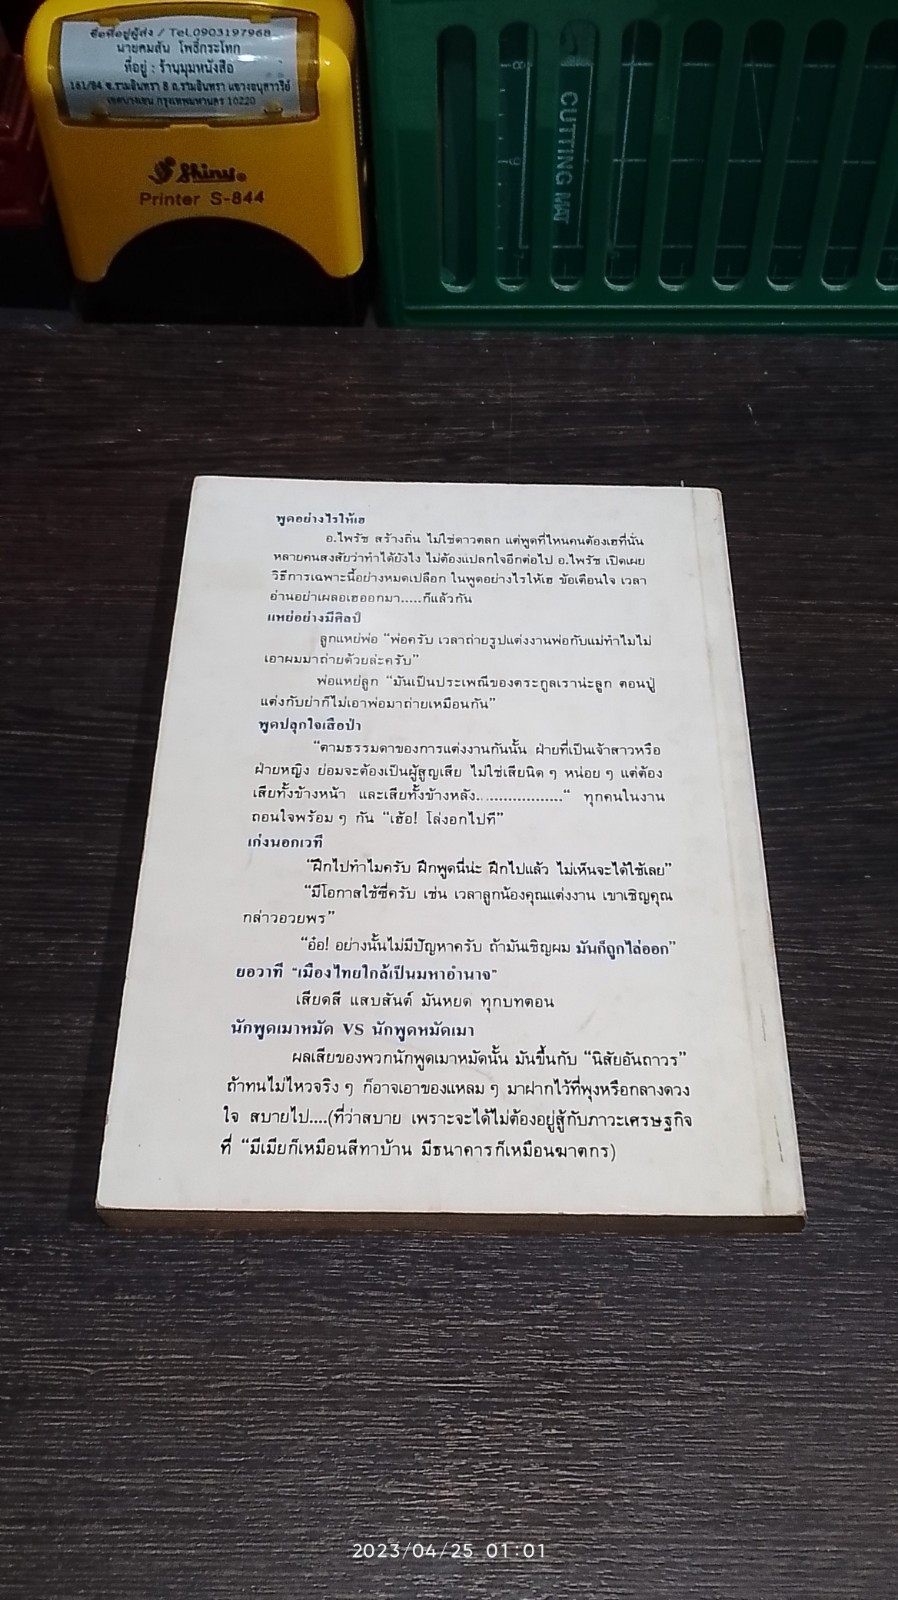 ชื่อที่อยู่ผู้ส่ง / Tel.0903197968
นายคมสัน โพธิ์กระโทก
ที่อยู่ : ร้านมุมหนังสือ
161/84 ซ.รามอินทรา 8 ถ.รามอินทรา แขวงอนุสาวรีย์
เขตบางเขน กรุงเทพมหานคร 10220
Shiny
Printer S-844
CUTTING MAT
พูดอย่างไรให้เฮ
อ.ไพรัช สร้างถิ่น ไม่ใช่ดาวตลก แต่พูดที่ไหนคนต้องเฮที่นั่น
หลายคนสงสัยว่าทำได้ยังไง ไม่ต้องแปลกใจอีกต่อไป อ.ไพรัช เปิดเผย
วิธีการเฉพาะนี้อย่างหมดเปลือก ในพูดอย่างไรให้เฮ ข้อเตือนใจ เวลา
อ่านอย่าเผลอเฮออกมา.....ก็แล้วกัน
แหย่อย่างมีศิลป์
ลูกแหย่พ่อ "พ่อครับ เวลาถ่ายรูปแต่งงานพ่อกับแม่ทำไมไม่
เอาผมมาถ่ายด้วยล่ะครับ"
พ่อแหย่ลูก "มันเป็นประเพณีของตระกูลเราน่ะลูก ตอนปู่
แต่งกับย่าก็ไม่เอาพ่อมาถ่ายเหมือนกัน"
พูดปลุกใจเสือป่า
"ตามธรรมดาของการแต่งงานกันนั้น ฝ่ายที่เป็นเจ้าสาวหรือ
ฝ่ายหญิง ย่อมจะต้องเป็นผู้สูญเสีย ไม่ใช่เสียนิด ๆ หน่อย ๆ แต่ต้อง
เสียทั้งข้างหน้า และเสียทั้งข้างหลัง..................." ทุกคนในงาน
ถอนใจพร้อม ๆ กัน "เฮ้อ! โล่งอกไปที"
เก่งนอกเวที
"ฝึกไปทำไมครับ ฝึกพูดนี่น่ะ ฝึกไปแล้ว ไม่เห็นจะได้ใช้เลย"
"มีโอกาสใช้ซี่ครับ เช่น เวลาลูกน้องคุณแต่งงาน เขาเชิญคุณ
กล่าวอวยพร"
"อ๋อ! อย่างนั้นไม่มีปัญหาครับ ถ้ามันเชิญผม มันก็ถูกไล่ออก"
ยอวาที "เมืองไทยใกล้เป็นมหาอำนาจ"
เสียดสี แสบสันต์ มันหยด ทุกบทตอน
นักพูดเมาหมัด VS นักพูดหมัดเมา
ผลเสียของพวกนักพูดเมาหมัดนั้น มันขึ้นกับ "นิสัยอันถาวร"
ถ้าทนไม่ไหวจริง ๆ ก็อาจเอาของแหลม ๆ มาฝากไว้ที่พุงหรือกลางดวง
ใจ สบายไป....(ที่ว่าสบาย เพราะจะได้ไม่ต้องอยู่สู้กับภาวะเศรษฐกิจ
ที่ "มีเมียก็เหมือนสีทาบ้าน มีธนาคารก็เหมือนฆาตกร)
2023/04/25 01:01